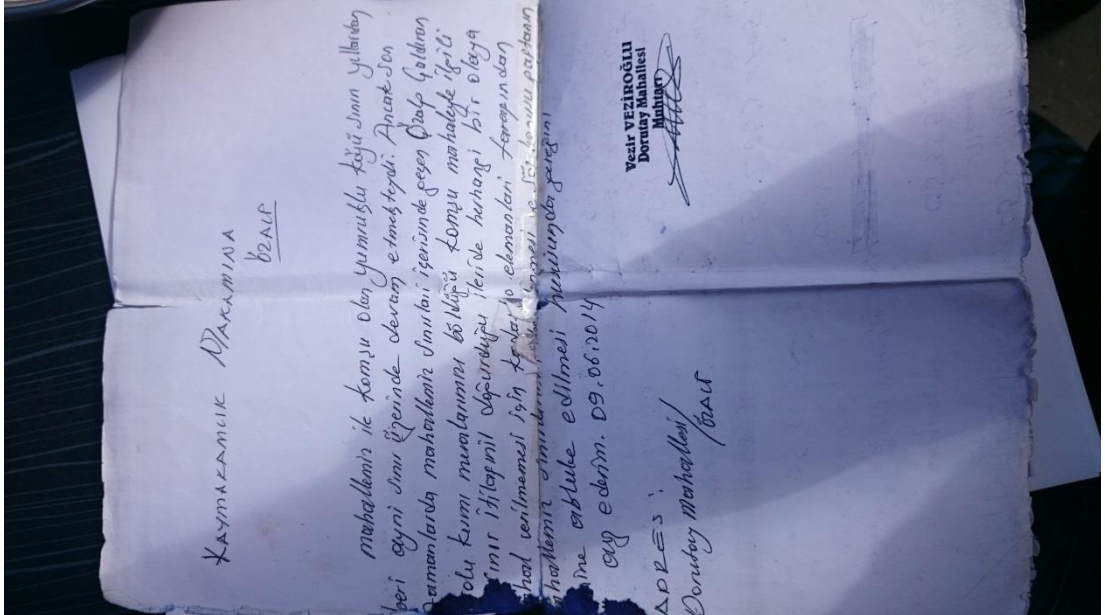 KAYMAKAMLIK MAKAMINA
ÖZALP
mahallemin ile komşu olan yumruklu köyü sınırı yıllardan
beri ayni sınır üzerinde devam etmekteydi. Ancak son
zamanlarda mahallemin sınırları içerisinde geçen Özalp Çaldıran
yolu kumı meralarımızı böldüğü komşu mahaleyle ilgili
sınır itilafınıl doğurduğu ileride herhangi bir olaya
mahal verilmemesi için kadastro elemanları tarafından
mahallemin
ine aktluke edilmesi hususunda gereğini
arz ederim. 09.06.2014
Vezir VEZİROĞLU
Dorutay Mahallesi
Muhtarı
ADRES:
Dorutay mahallesi/
ÖZALP